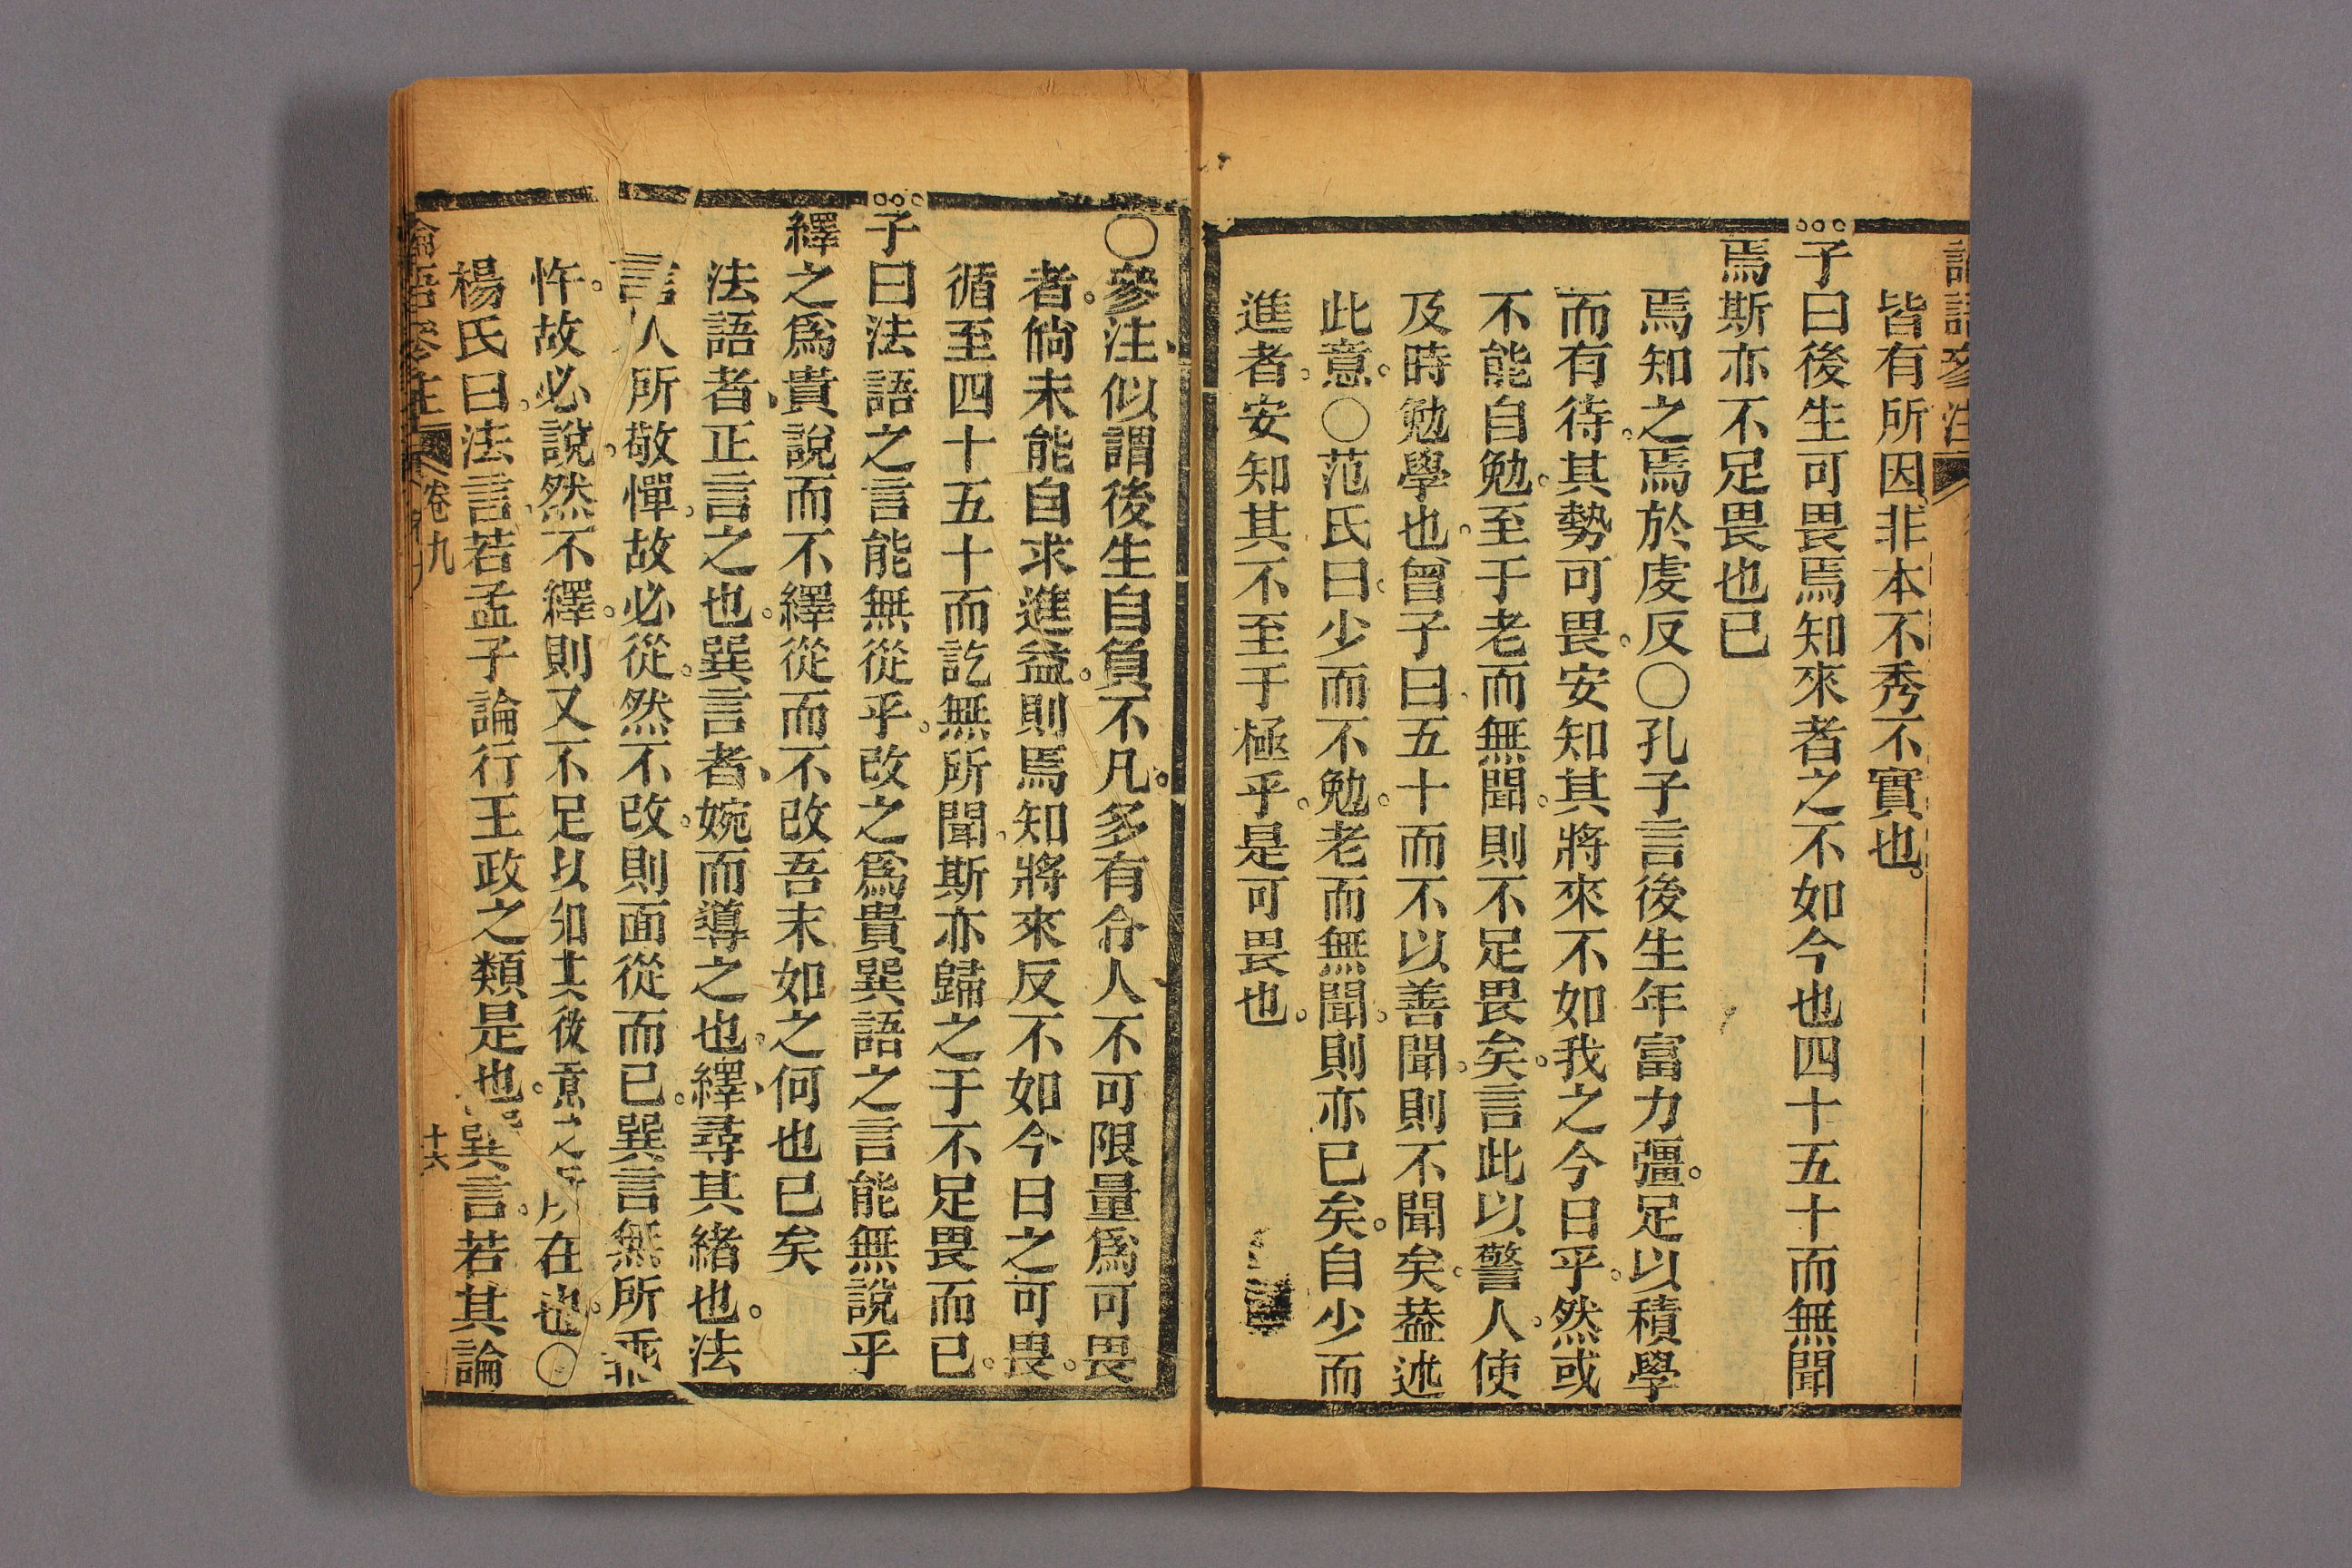 語參注
皆有所因非本不秀不實也。
子曰後生可畏焉知來者之不如今也四十五十而無聞
焉斯亦不足畏也已
焉知之焉於虔反〇孔子言後生年富力彊。足以積學
而有待。其勢可畏。安知其將來不如我之今日乎。然或
不能自勉。至于老而無聞。則不足畏矣。言此以警人。使
及時勉學也。曾子曰。五十而不以善聞。則不聞矣。葢述
此意。〇范氏曰。少而不勉。老而無聞。則亦已矣。自少而
進者。安知其不至于極乎。是可畏也。
〇參注、似謂後生自負不凡。多有令人不可限量爲可畏
者。倘未能自求進益。則焉知將來反不如今日之可畏。
循至四十五十而訖無所聞。斯亦歸之于不足畏而已。
子曰法語之言能無從乎。改之爲貴巽語之言能無說乎
繹之爲貴說而不繹從而不改吾末如之何也已矣
法語者、正言之也。巽言者、婉而導之也。繹、尋其緒也。法
言人所敬憚。故必從。然不改。則面從而已。巽言無所乖
忤。故必說。然不繹。則又不足以知其微意之所在也。〇
楊氏曰。法言。若孟子論行王政之類是也。巽言。若其論
論語參注
卷九
十六